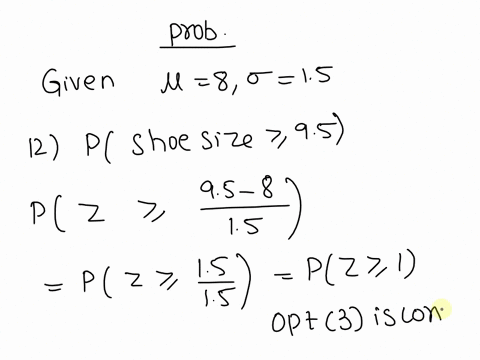 prob.
Given μ = 8, σ = 1.5
12) P( shoe size ≥ 9.5)
P( Z ≥ (9.5-8)/1.5 )
= P( Z ≥ 1.5/1.5 ) = P(Z ≥ 1)
opt (3) is cor